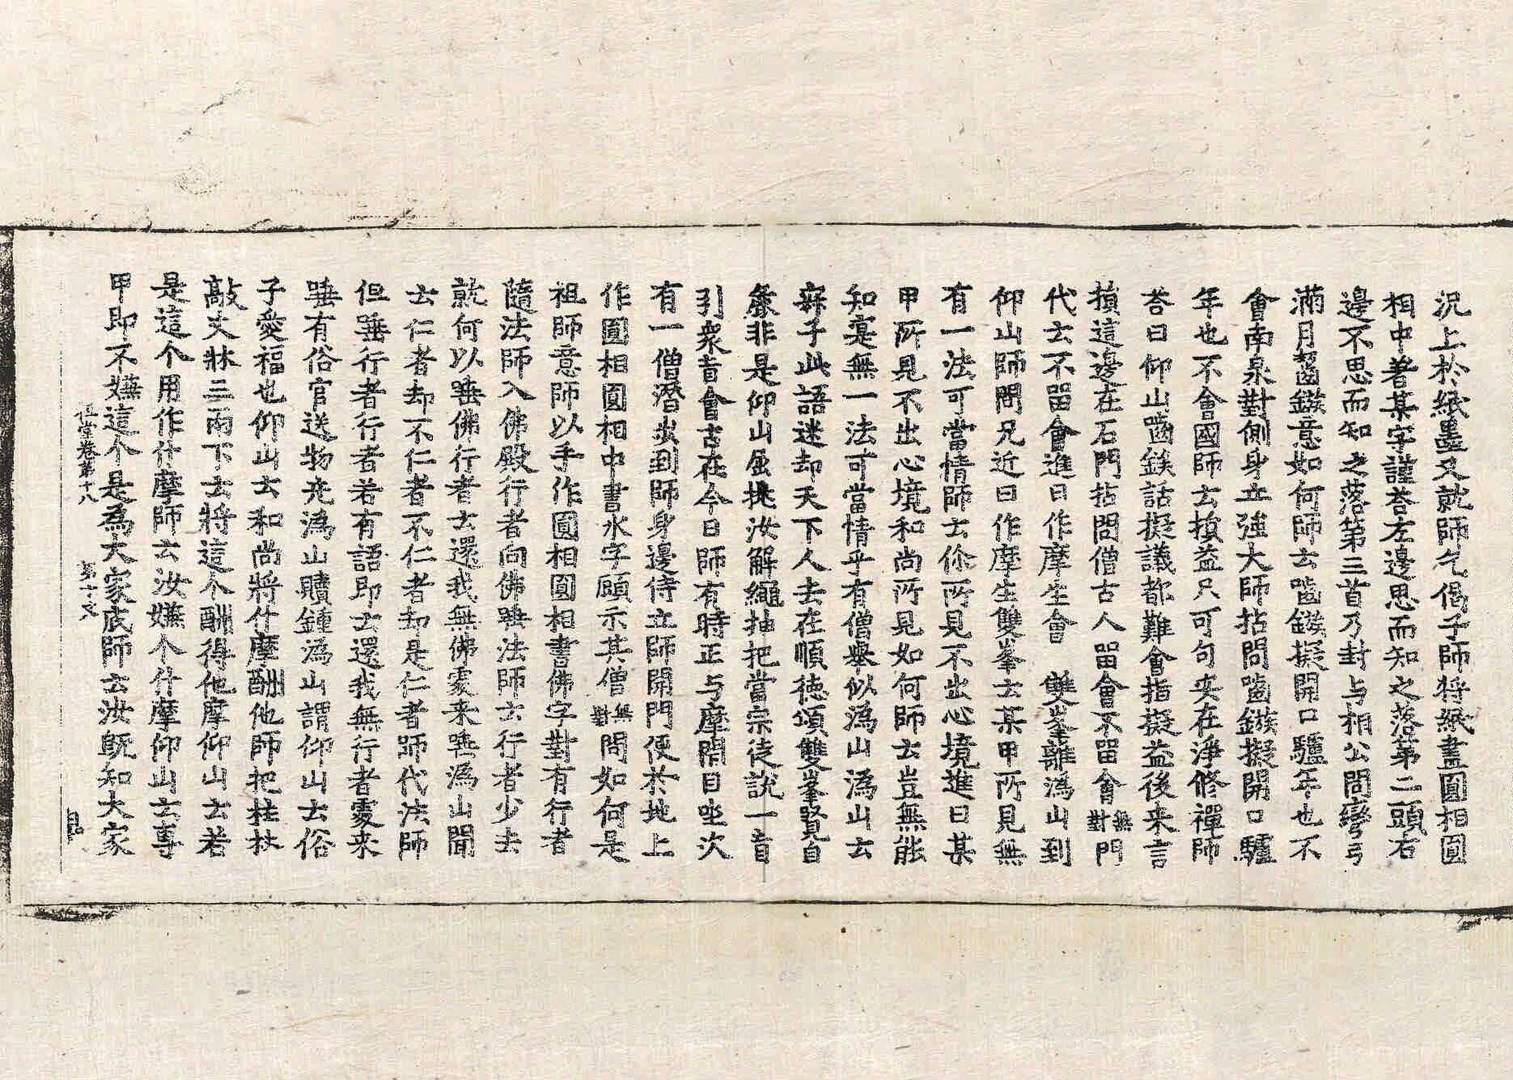 況上於紙墨又就師乞偈子師將紙畫圓相圓
相中著某字謹荅左邊思而知之落第二頭右
邊不思而知之落第三首乃封与相公問彎弓
滿月齧鏃意如何師云齧鏃擬開口驢年也不
會南泉對側身立強大師拈問齧鏃擬開口驢
年也不會國師云損益只可句安在淨修禪師
荅曰仰山齧鏃話擬議都難會指擬益後来言
損這邊在石門拈問僧古人留會不留會無對門
代云不留會進曰作摩生會　雙峯離溈山到
仰山師問兄近日作摩生雙峯云某甲所見無
有一法可當情師云你所見不出心境進曰某
甲所見不出心境和尚所見如何師云豈無能
知寔無一法可當情乎有僧舉似溈山溈山云
寂子此語迷却天下人去在順德頌雙峯賢自
麁非是仰山屈挑汝解繩抽把當宗徒說一首
引衆音會古在今日師有時正与摩閇目坐次
有一僧潛步到師身邊侍立師開門便於地上
作圓相圓相中書水字顧示其僧無對問如何是
祖師意師以手作圓相圓相書佛字對有行者
隨法師入佛殿行者向佛唾法師云行者少去
就何以唾佛行者云還我無佛處来唾溈山聞
云仁者却不仁者不仁者却是仁者師代法師
但唾行者行者若有語即云還我無行者處来
唾有俗官送物充溈山贖鍾溈山謂仰山云俗
子愛福也仰山云和尚將什摩酬他師把柱杖
敲丈牀三兩下云將這个酬得他摩仰山云若
是這个用作什摩師云汝嫌个什摩仰山云專
甲即不嫌這个是為大家底師云汝旣知大家
堂卷第十八　第十丈